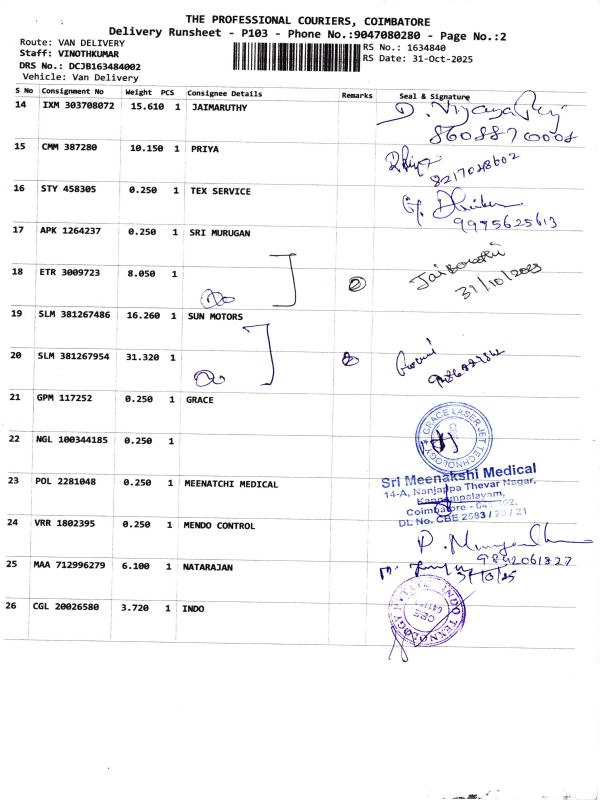 THE PROFESSIONAL COURIERS, COIMBATORE
Delivery Runsheet - P103 - Phone No.:9047080280 - Page No.:2
Route: VAN DELIVERY
Staff: VINOTHKUMAR
DRS No.: DCJB163484002
Vehicle: Van Delivery
RS No.: 1634840
RS Date: 31-Oct-2025
S No Consignment No Weight PCS Consignee Details Remarks Seal & Signature
14 IXM 303708072 15.610 1 JAIMARUTHY
8608870008
15 CMM 387280 10.150 1 PRIYA
Priya
8217048602
16 STY 458305 0.250 1 TEX SERVICE
9995625613
17 APK 1264237 0.250 1 SRI MURUGAN
18 ETR 3009723 8.050 1
2
31/10/2025
19 SLM 381267486 16.260 1 SUN MOTORS
20 SLM 381267954 31.320 1
2
21 GPM 117252 0.250 1 GRACE
GRACE LASER JET TECHNOLOGY
22 NGL 100344185 0.250 1
23 POL 2281048 0.250 1 MEENATCHI MEDICAL
Sri Meenakshi Medical
14-A, Nanjappa Thevar Nagar,
Kannampalayam,
Coimbatore - 641 402.
DL No. CBE 2583 / 20 / 21
24 VRR 1802395 0.250 1 MENDO CONTROL
9842061827
25 MAA 712996279 6.100 1 NATARAJAN
31/10/25
26 CGL 20026580 3.720 1 INDO
INDO TEXNOLOGY PVT LTD
CBE